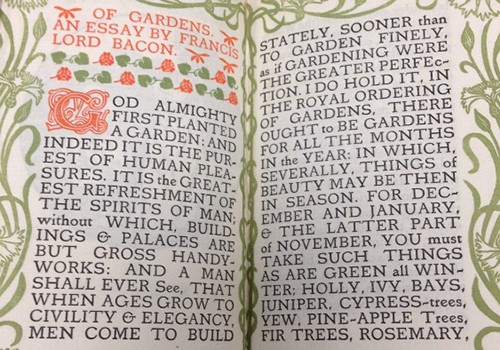 OF GARDENS.
AN ESSAY BY FRANCIS
LORD BACON.
GOD ALMIGHTY
FIRST PLANTED
A GARDEN: AND
INDEED IT IS THE PUR-
EST OF HUMAN PLEA-
SURES. IT IS the GREAT-
EST REFRESHMENT OF
THE SPIRITS OF MAN;
without WHICH, BUILD
INGS & PALACES ARE
BUT GROSS HANDY-
WORKS: AND A MAN
SHALL EVER See, THAT
WHEN AGES GROW TO
CIVILITY & ELEGANCY,
MEN COME TO BUILD
STATELY, SOONER than
TO GARDEN FINELY,
as if GARDENING WERE
THE GREATER PERFEC-
TION. I DO HOLD IT, IN
THE ROYAL ORDERING
OF GARDENS, THERE
OUGHT to BE GARDENS
FOR ALL THE MONTHS
IN the YEAR: IN WHICH,
SEVERALLY, THINGS of
BEAUTY MAY BE THEN
IN SEASON. FOR DEC-
EMBER AND JANUARY,
& THE LATTER PART
of NOVEMBER, YOU must
TAKE SUCH THINGS
AS ARE GREEN all WIN-
TER: HOLLY, IVY, BAYS,
JUNIPER, CYPRESS-trees,
YEW, PINE-APPLE Trees,
FIR TREES, ROSEMARY,